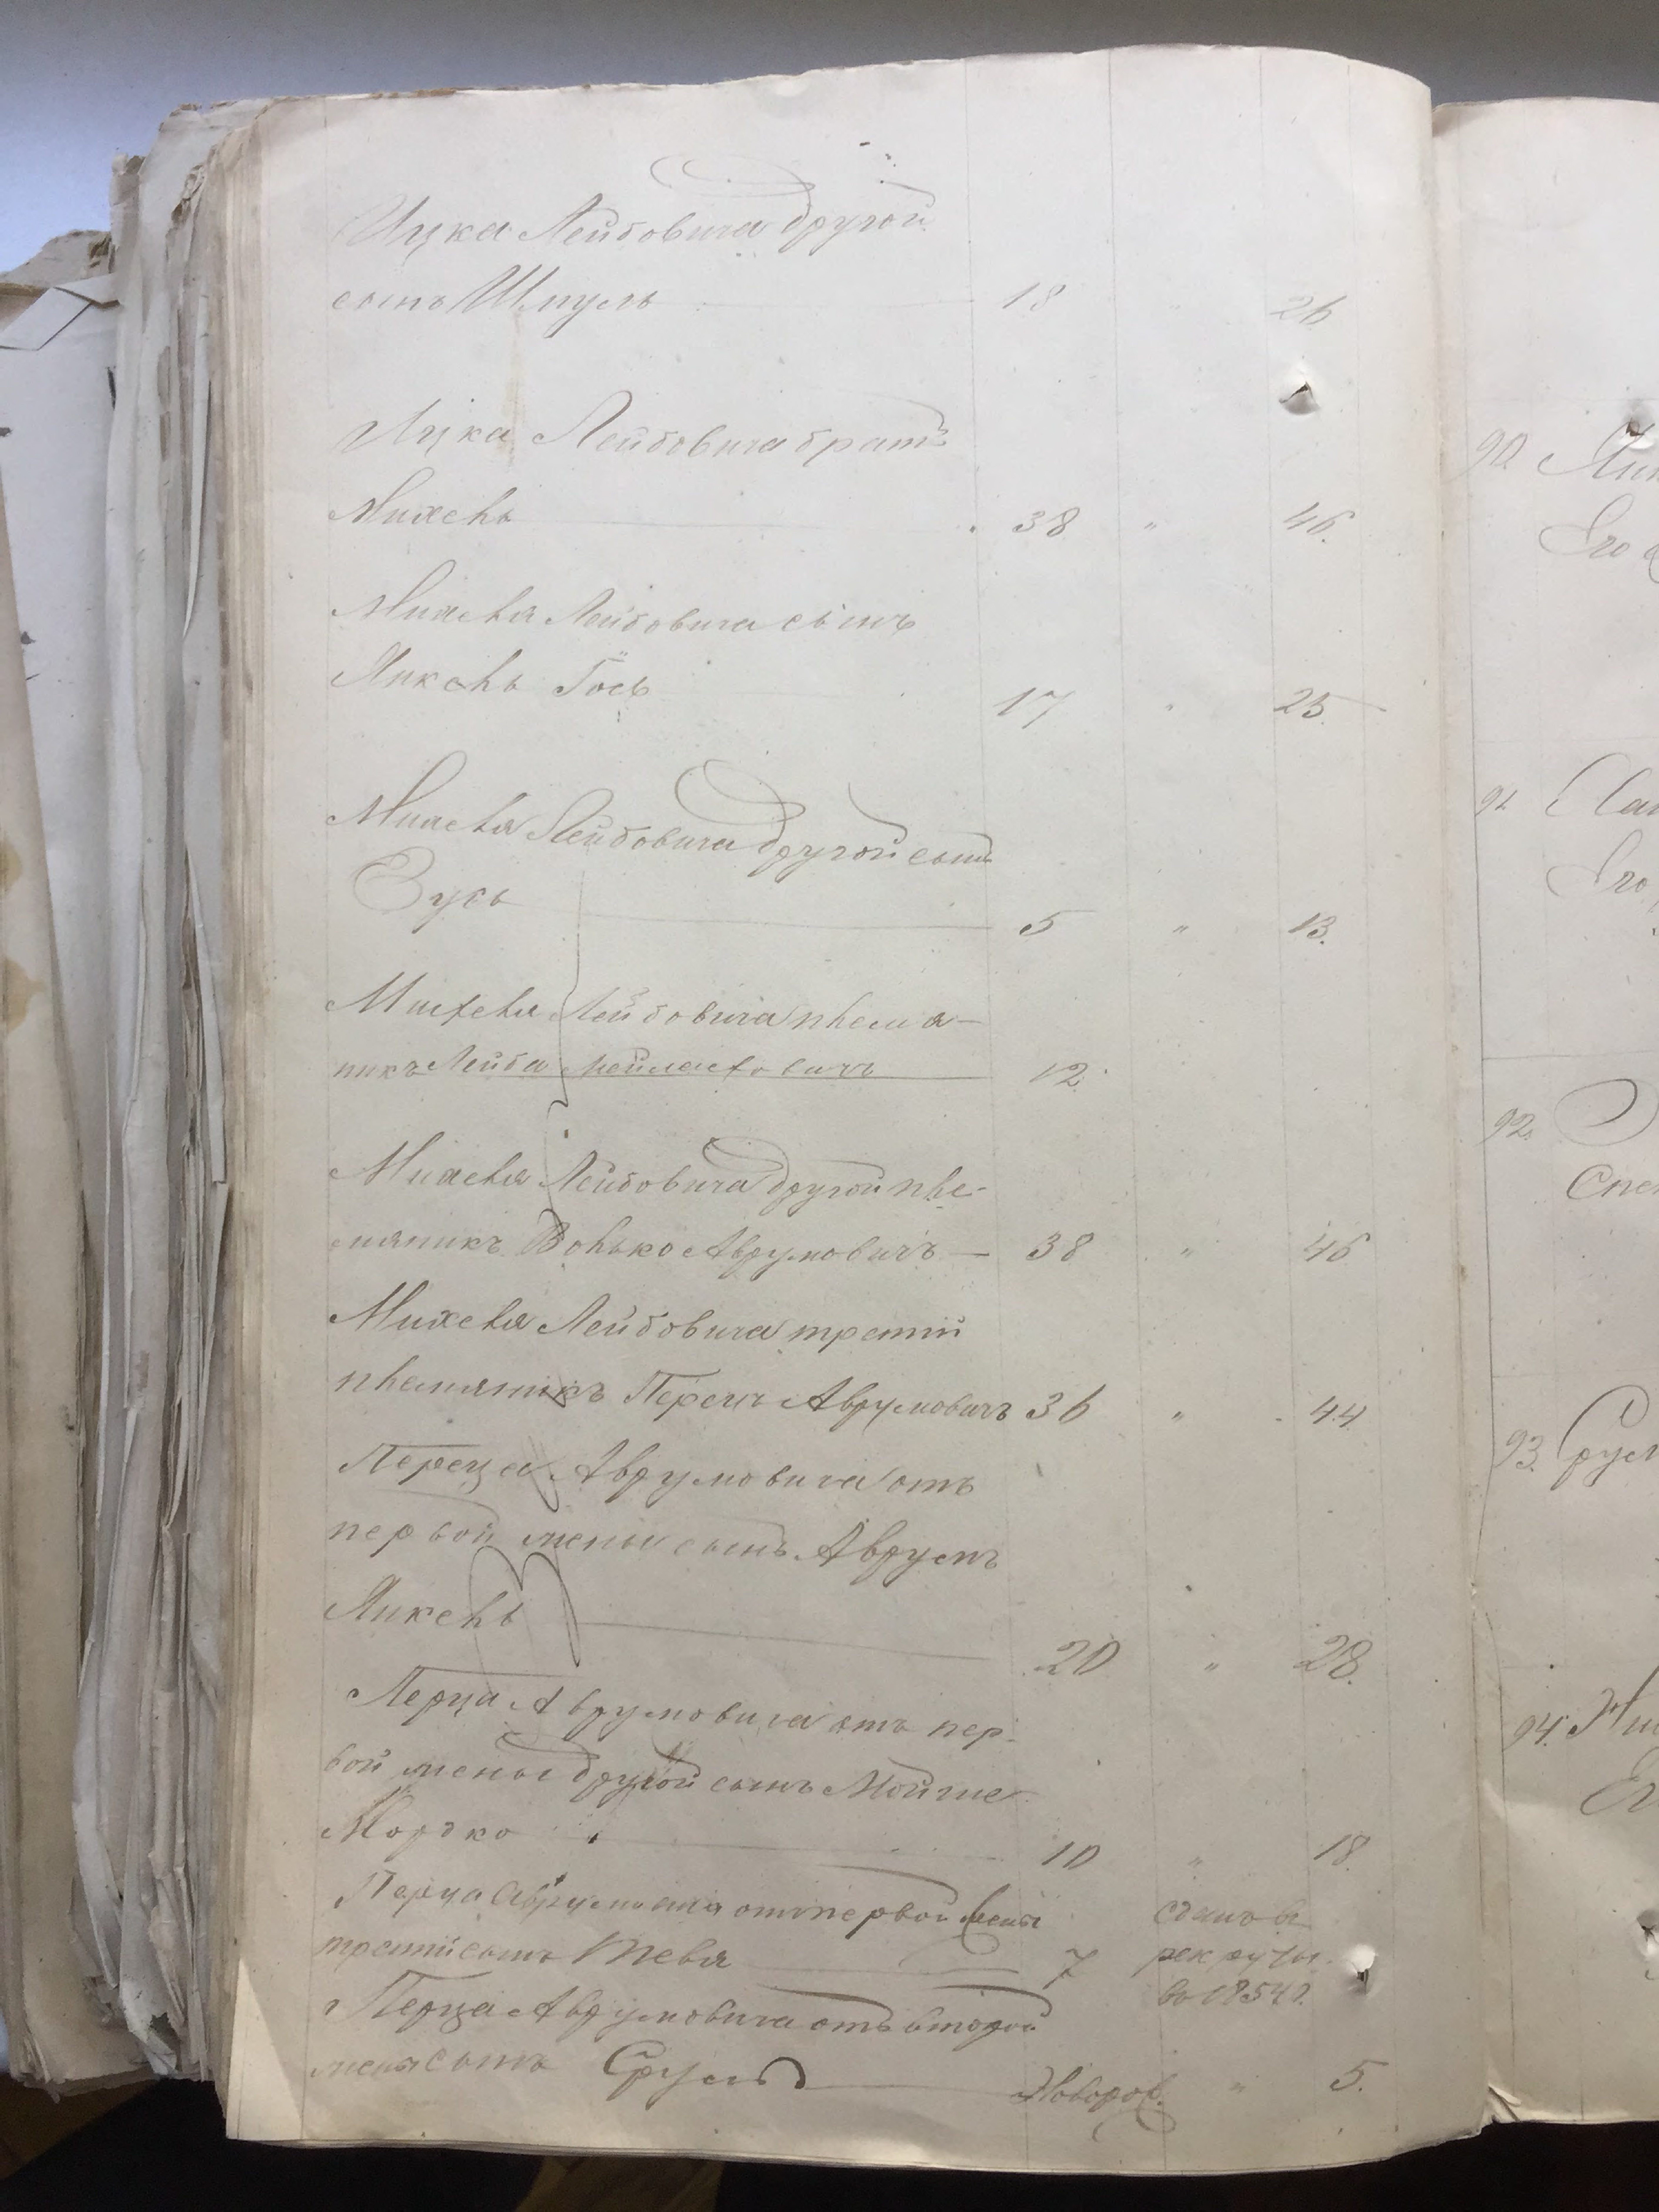 Ицка Лейбовича другой
сынъ Шмуль 18 " 26
Ицка Лейбовича братъ
Михель 38 " 46.
Михеля Лейбовича сынъ
Янкель Госъ 17 " 25.
Михеля Лейбовича другой сынъ
Зусь 5 " 13.
Михеля Лейбовича племя-
никъ Лейба 12.
Михеля Лейбовича другой пле-
мяникъ Волько Аврумовичъ — 38 " 46
Михеля Лейбовича третий
племяникъ Перецъ Аврумовичъ 36 " 44.
Переца Аврумовича отъ
первой жены сынъ Аврумъ
Янкель 20 " 28.
Перца Аврумовича отъ пер-
вой жены другой сынъ Мойше
Мордко 10 " 18.
Перца Аврумовича отъ первой жены
третий сынъ Тевя 7
сданъ въ
рекруты
въ 1854 г.
Перца Аврумовича отъ второй
жены сынъ Сруль Новорож. " 5.
90. Янк
Его
91.
Его
92.
93. Срул
94.
Ег